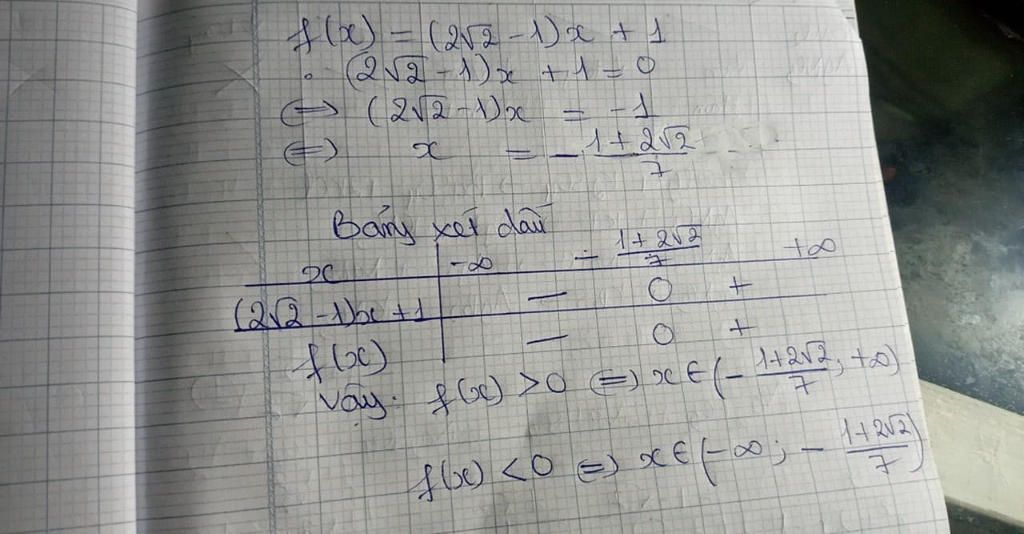 f(x) = (2√2 - 1)x + 1
. (2√2 - 1)x + 1 = 0
⇔ (2√2 - 1)x = -1
⇔ x = - (1 + 2√2)/7
Bảng xét dấu
x | -∞ - (1 + 2√2)/7 +∞
(2√2 - 1)x + 1 | — 0 +
f(x) | — 0 +
Vậy. f(x) > 0 ⇔ x ∈ (- (1+2√2)/7 ; +∞)
f(x) < 0 ⇔ x ∈ (-∞ ; - (1+2√2)/7)